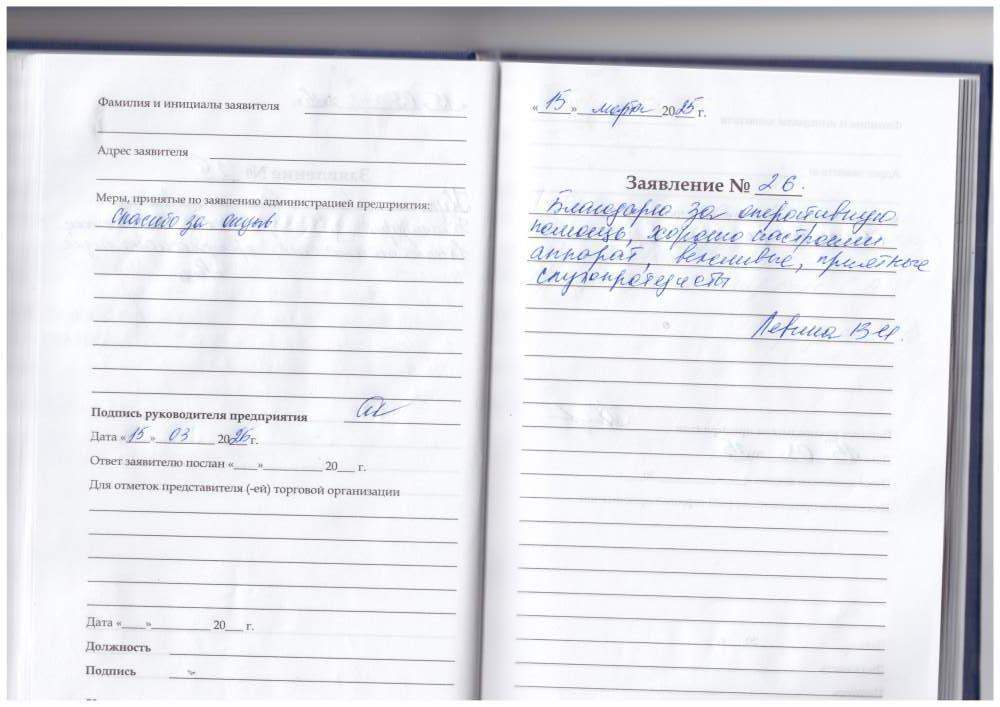 Фамилия и инициалы заявителя
Адрес заявителя
Меры, принятые по заявлению администрацией предприятия:
Спасибо за отзыв
Подпись руководителя предприятия
Дата «15» 03 2025г.
Ответ заявителю послан «____»__________ 20___ г.
Для отметок представителя (-ей) торговой организации
Дата «____»__________ 20___ г.
Должность
Подпись
«15» марта 2025 г.
Заявление № 26.
Благодарю за оперативную
помощь, хорошо настроили
аппарат, вежливые, приятные
слухопротезисты
Левина В.И.